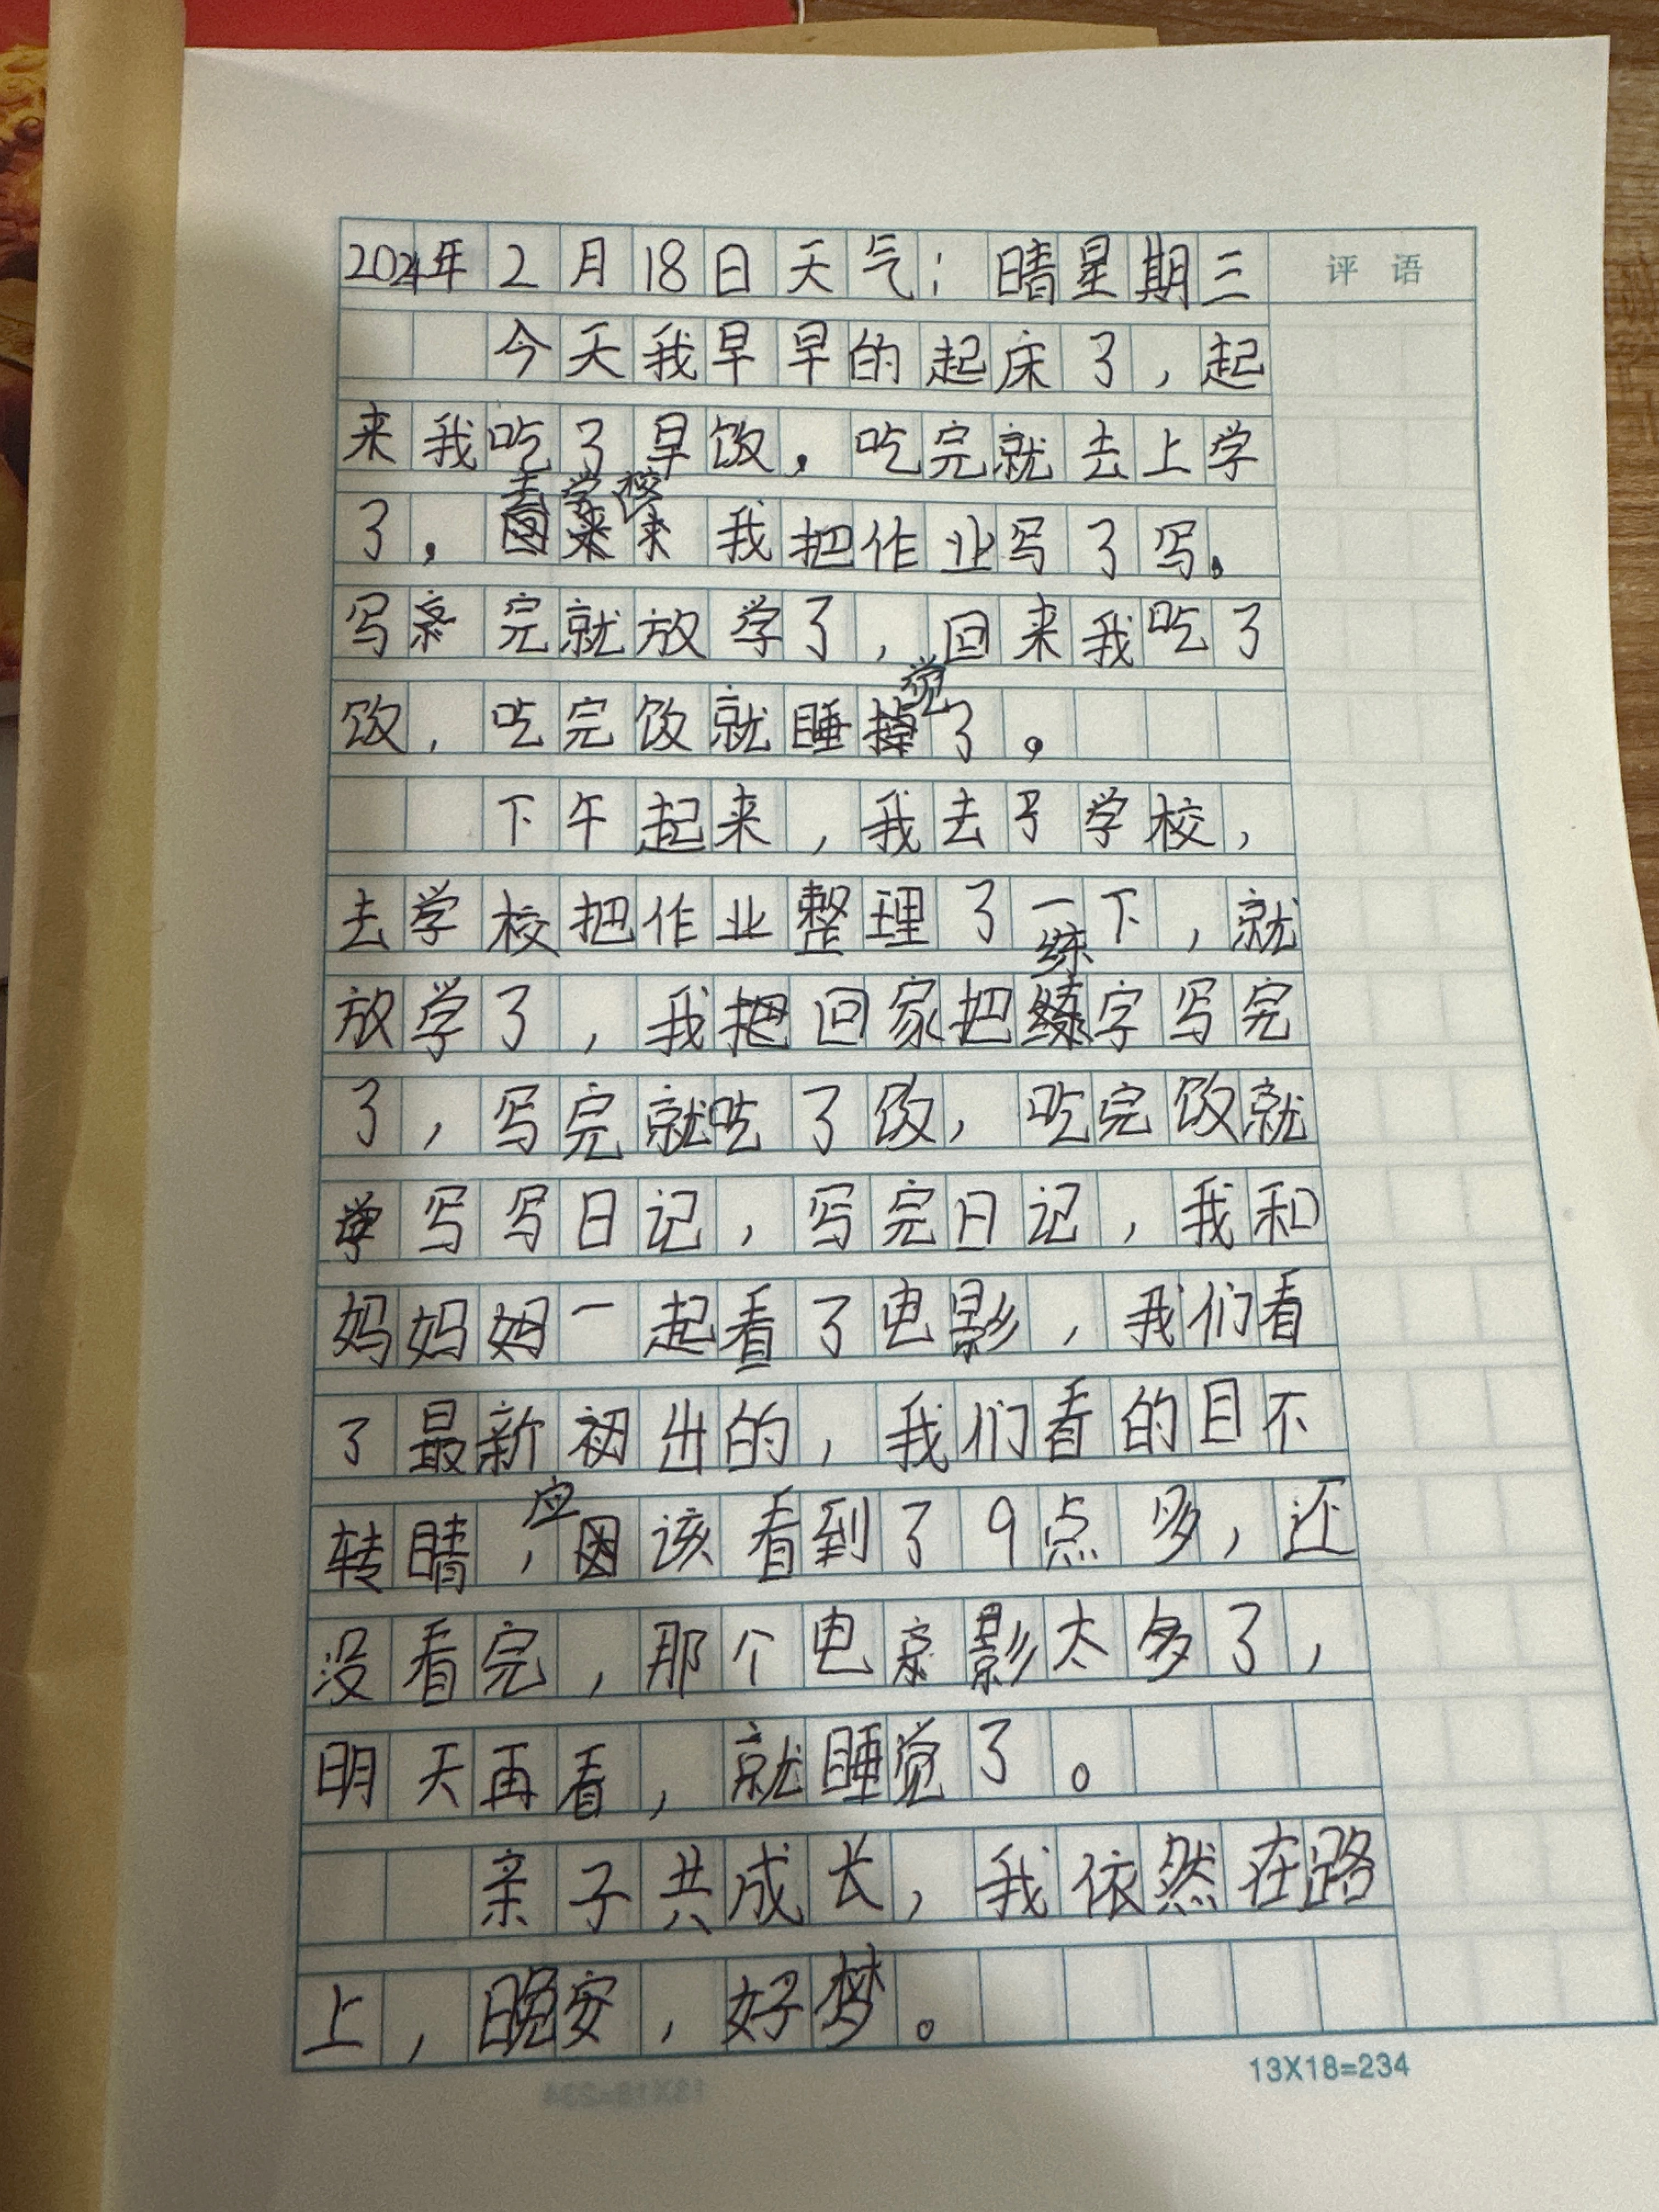 2024年2月18日天气：晴星期三
评语
今天我早早的起床了，起
来我吃了早饭，吃完就去上学
了，去学校来我把作业写了写。
写完就放学了，回来我吃了
饭，吃完饭就睡觉了。
下午起来，我去了学校，
去学校把作业整理了一下，就
放学了，我把回家把练字写完
了，写完就吃了饭，吃完饭就
写写日记，写完日记，我和
妈妈妈一起看了电影，我们看
了最新初出的，我们看的目不
转睛，应该看到了9点多，还
没看完，那个电影太多了，
明天再看，就睡觉了。
亲子共成长，我依然在路
上，晚安，好梦。
13X18=234